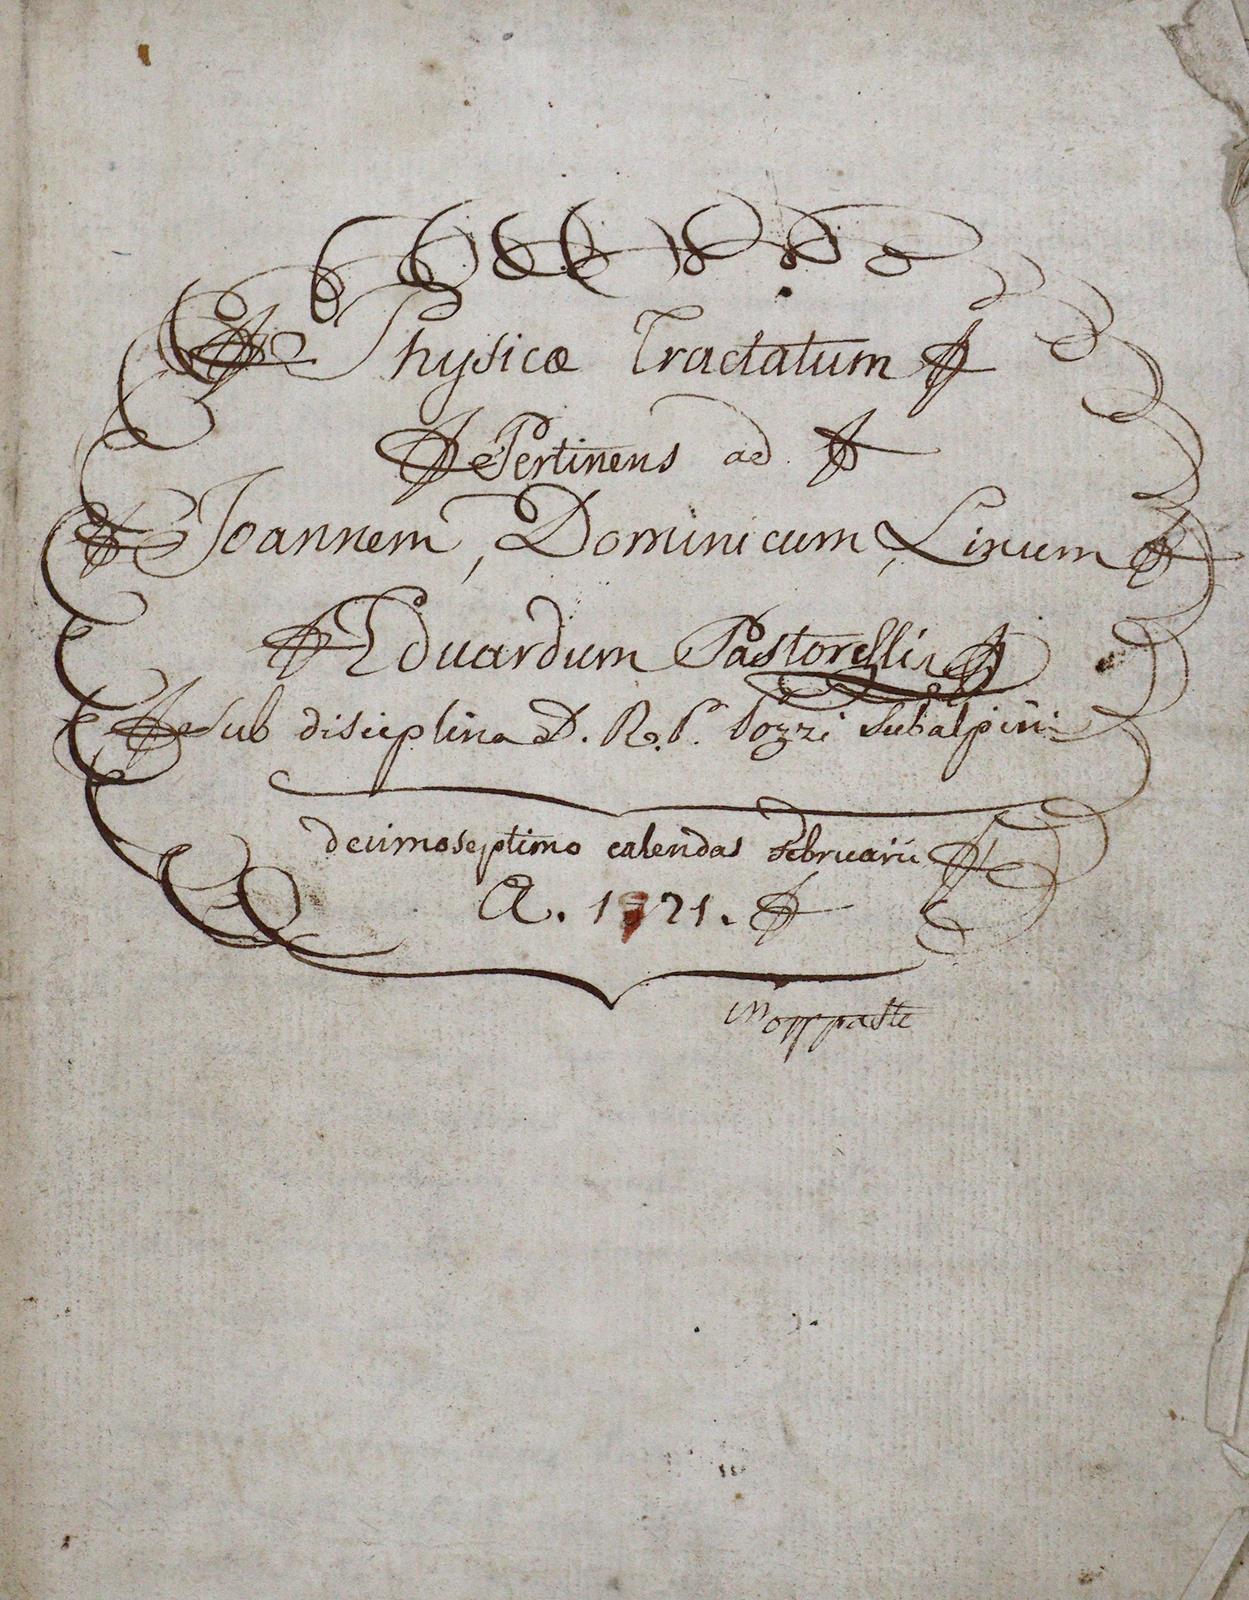 Physicæ Tractatum
Pertinens ad
Joannem, Dominicum, Linum
Eduardum Pastorelli
Sub disciplina D. R. P. Pozzi Subalpini
decimoseptimo calendas Februarii
A. 1821.